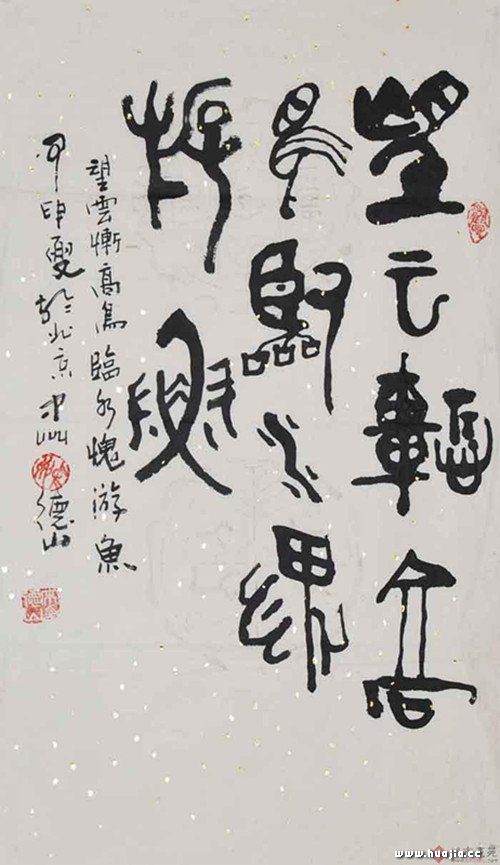 望云慚高
鳥臨水愧
游魚
望雲慚高鳥臨水愧游魚
甲申夏於北京德山
www.huajia.cc